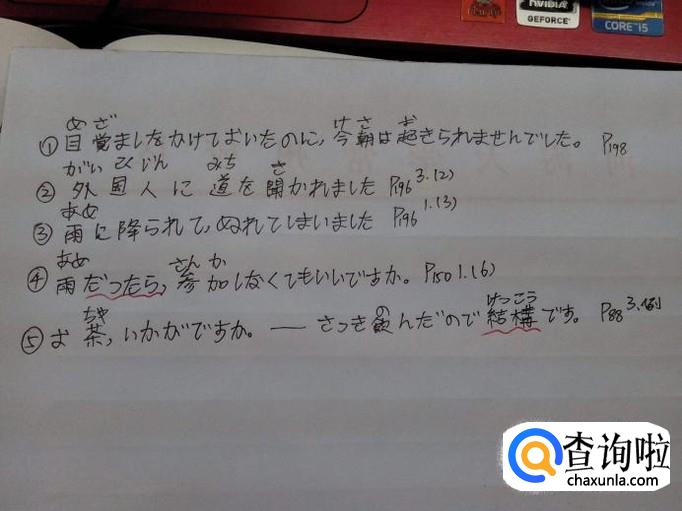 NVIDIA
GEFORCE
CORE i5
めざ けさ お
①目覚ましをかけておいたのに,今朝は起きられませんでした。 P198
がいこくじん みち き
②外国人に道を聞かれました P196 3.(2)
あめ
③雨に降られて,ぬれてしまいました P196 1.(3)
あめ さんか
④雨だったら,参加しなくてもいいですか。P150 1.(6)
ちゃ の けっこう
⑤お茶,いかがですか。— さっき飲んだので結構です。 P88 3.例
查询啦
chaxunla.com